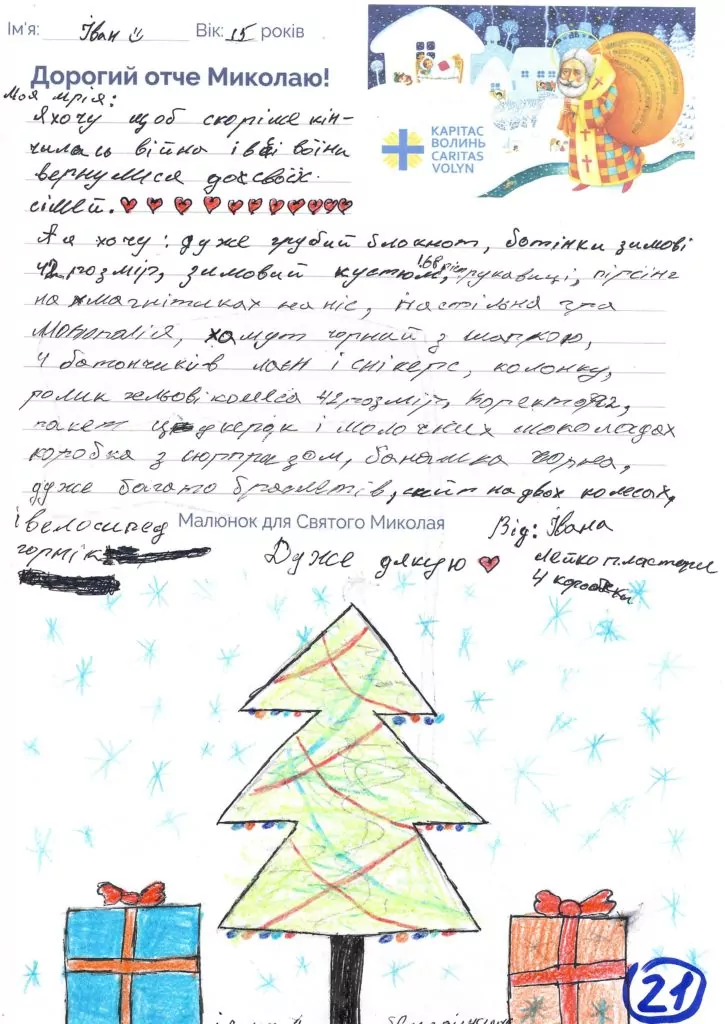 Ім'я: Іван Вік: 15 років
Дорогий отче Миколаю!
КАРІТАС
ВОЛИНЬ
CARITAS
VOLYN
Моя мрія:
Я хочу щоб скоріше кін-
чилась війна і всі воїни
вернулися до своїх
сімей.
А я хочу: дуже грубий блокнот, ботінки зимові
42 розмір, зимовий кустюм, 168 ріст рукавиці, пірсінг
на магнітиках на ніс, настільна гра
Монополія, хомут чорний з шапкою,
4 батончиків лаєн і снікерс, колонку,
ролик гельові колеса 42 розмір,
пакет цукерок і молочних шоколадах
коробка з сюрпризом, чорна,
дуже багато браслетів, на двох колесах,
і велосипед
Малюнок для Святого Миколая
Від: Івана
Дуже дякую
лейкопластирі
4 коробки
21